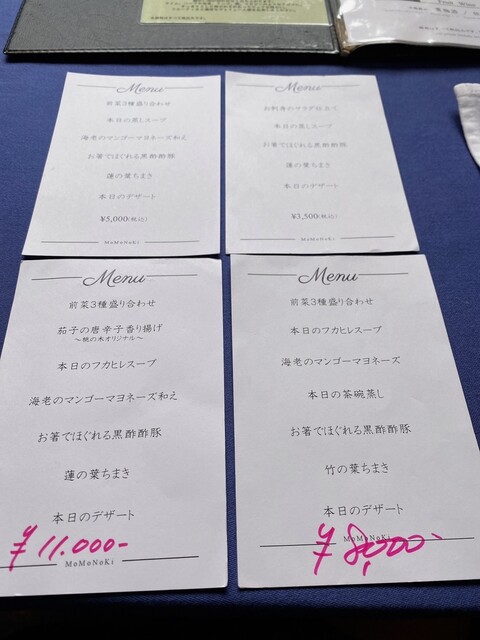 Menu
前菜3種盛り合わせ
本日の蒸しスープ
海老のマンゴーマヨネーズ和え
お箸でほぐれる黒酢酢豚
蓮の葉ちまき
本日のデザート
¥5,000(税込)
MoMoNoKi
Menu
お刺身のサラダ仕立て
本日の蒸しスープ
お箸でほぐれる黒酢酢豚
蓮の葉ちまき
本日のデザート
¥3,500(税込)
MoMoNoKi
Menu
前菜3種盛り合わせ
茄子の唐辛子香り揚げ
～桃の木オリジナル～
本日のフカヒレスープ
海老のマンゴーマヨネーズ和え
お箸でほぐれる黒酢酢豚
蓮の葉ちまき
本日のデザート
¥11.000-
MoMoNoKi
Menu
前菜3種盛り合わせ
本日のフカヒレスープ
海老のマンゴーマヨネーズ
本日の茶碗蒸し
お箸でほぐれる黒酢酢豚
竹の葉ちまき
本日のデザート
MoMoNoKi
¥8,000-